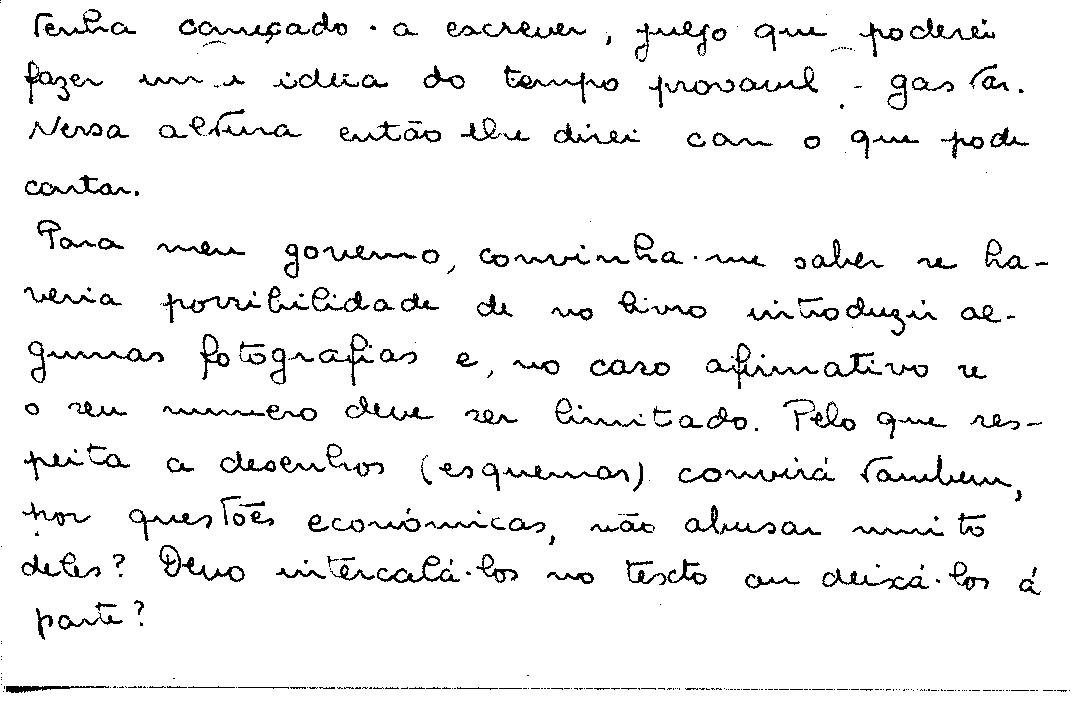 tenha começado a escrever, julgo que poderei
fazer uma ideia do tempo provavel a gastar.
Nessa altura então lhe direi com o que pode
contar.
Para meu governo, convinha-me saber se ha-
veria possibilidade de no livro introduzir al-
gumas fotografias e, no caso afirmativo se
o seu numero deve ser limitado. Pelo que res-
peita a desenhos (esquemas) convirá tambem,
por questões económicas, não abusar muito
deles? Devo intercalá-los no texto ou deixá-los á
parte?